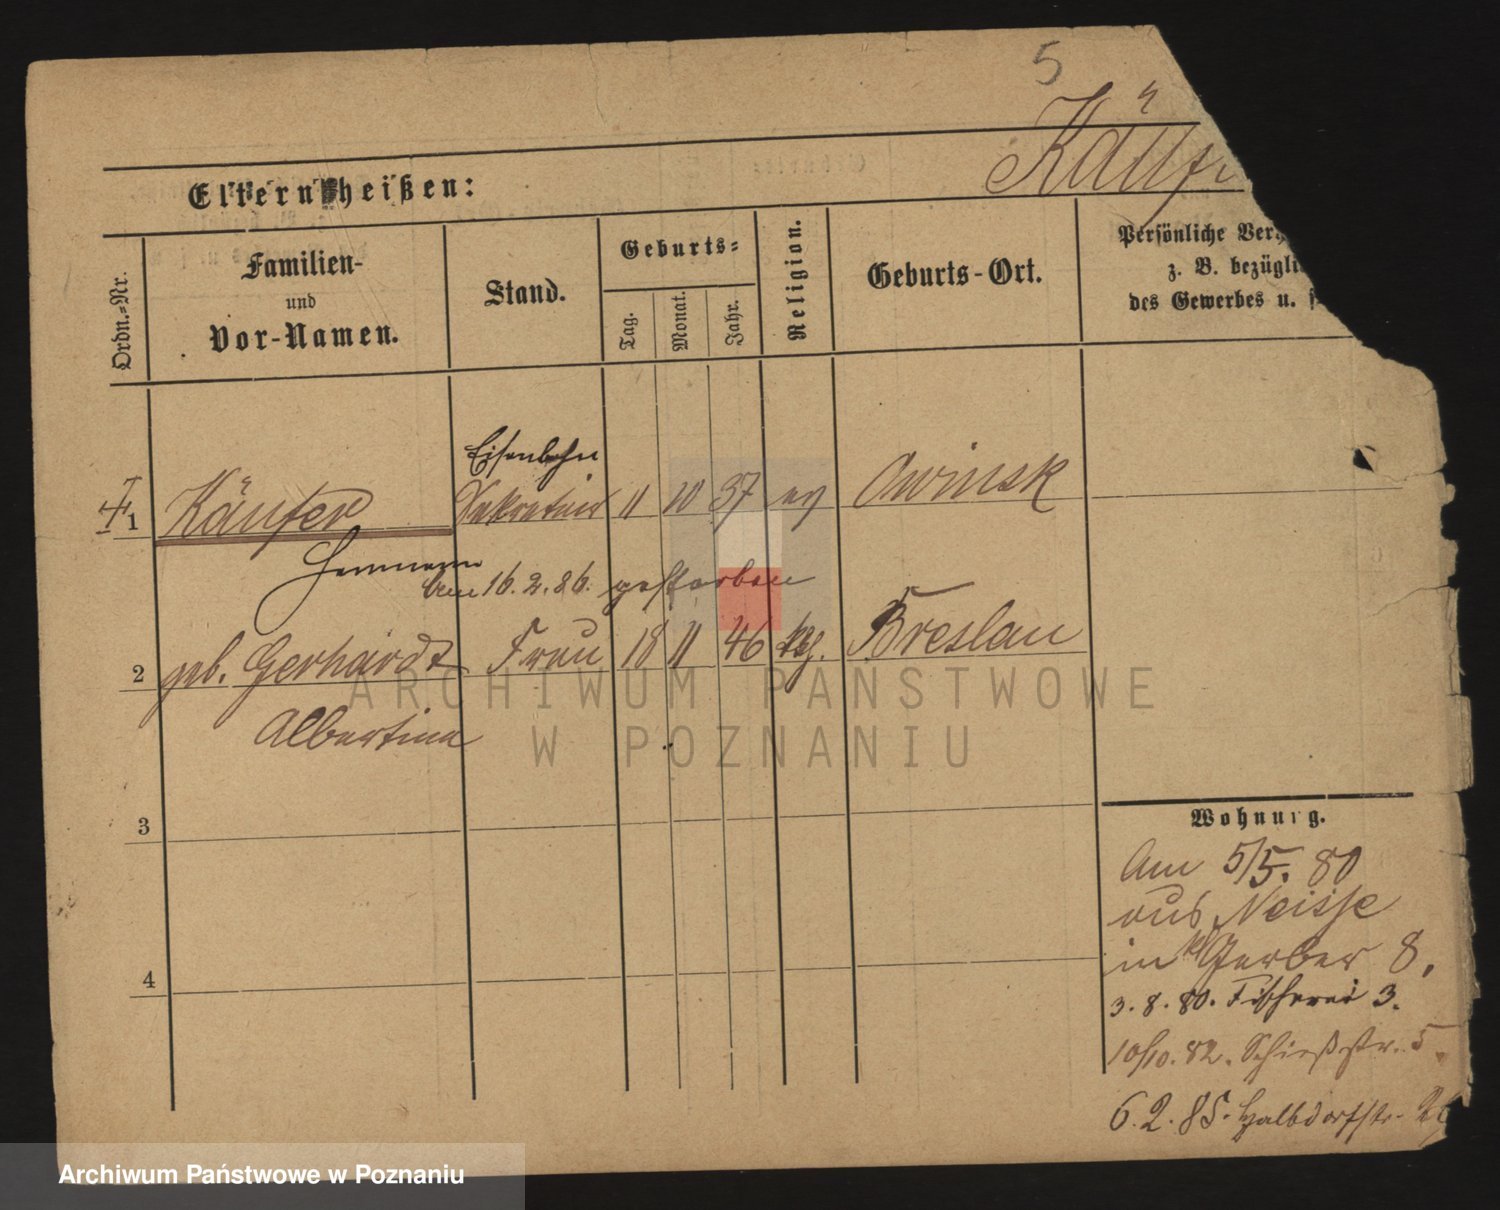 5
Käufer
Eltern heißen:
Ordn.-Nr.
Familien-
und
Vor-Namen.
Stand.
Geburts-
Tag.
Monat.
Jahr.
Religion.
Geburts-Ort.
Persönliche
z. B.
des Gewerbes u.
Eisenbahn
1 Käufer Sekretair 11 10 37 ev Owinsk
Hermann
am 16.2.86. gestorben
2 geb. Gerhardt Frau 18 11 46 Breslau
Albertine
3
4
Wohnung.
Am 5/5. 80
aus Neisse
in kl Gerber 8.
3.8.80. Fischerei 3.
10/10.82. Schießstr. 5
6.2.85. Halbdorfstr.
ARCHIWUM PAŃSTWOWE
W POZNANIU
Archiwum Państwowe w Poznaniu